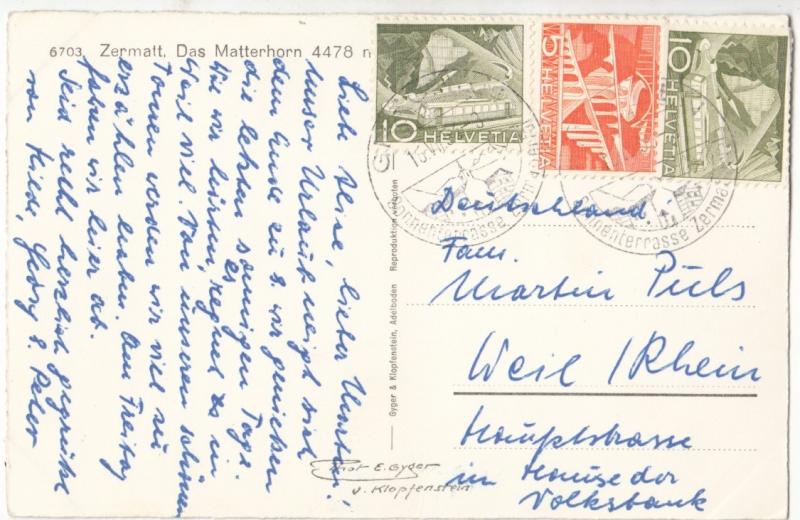 6703 Zermatt, Das Matterhorn 4478 m
Liebe Alice, lieber
unser Urlaub neigt sich
dem Ende zu & wir genießen
die letzten sonnigen Tage.
Wie wir hörten, regnet es in
Weil viel. Von unseren schönen
Touren werden wir viel zu
erzählen haben. Am Freitag
fahren wir hier ab.
Seid recht herzlich gegrüßt
von Friede, Georg & Peter
Gyger & Klopfenstein, Adelboden Reproduktion verboten
Phot E. Gyger
v. Klopfenstein
10
HELVETIA
5
HELVETIA
10
HELVETIA
Sonnenterrasse
Sonnenterrasse Zermatt
Deutschland
Fam.
Martin Puls
Weil / Rhein
Hauptstrasse
im Hause der
Volksbank